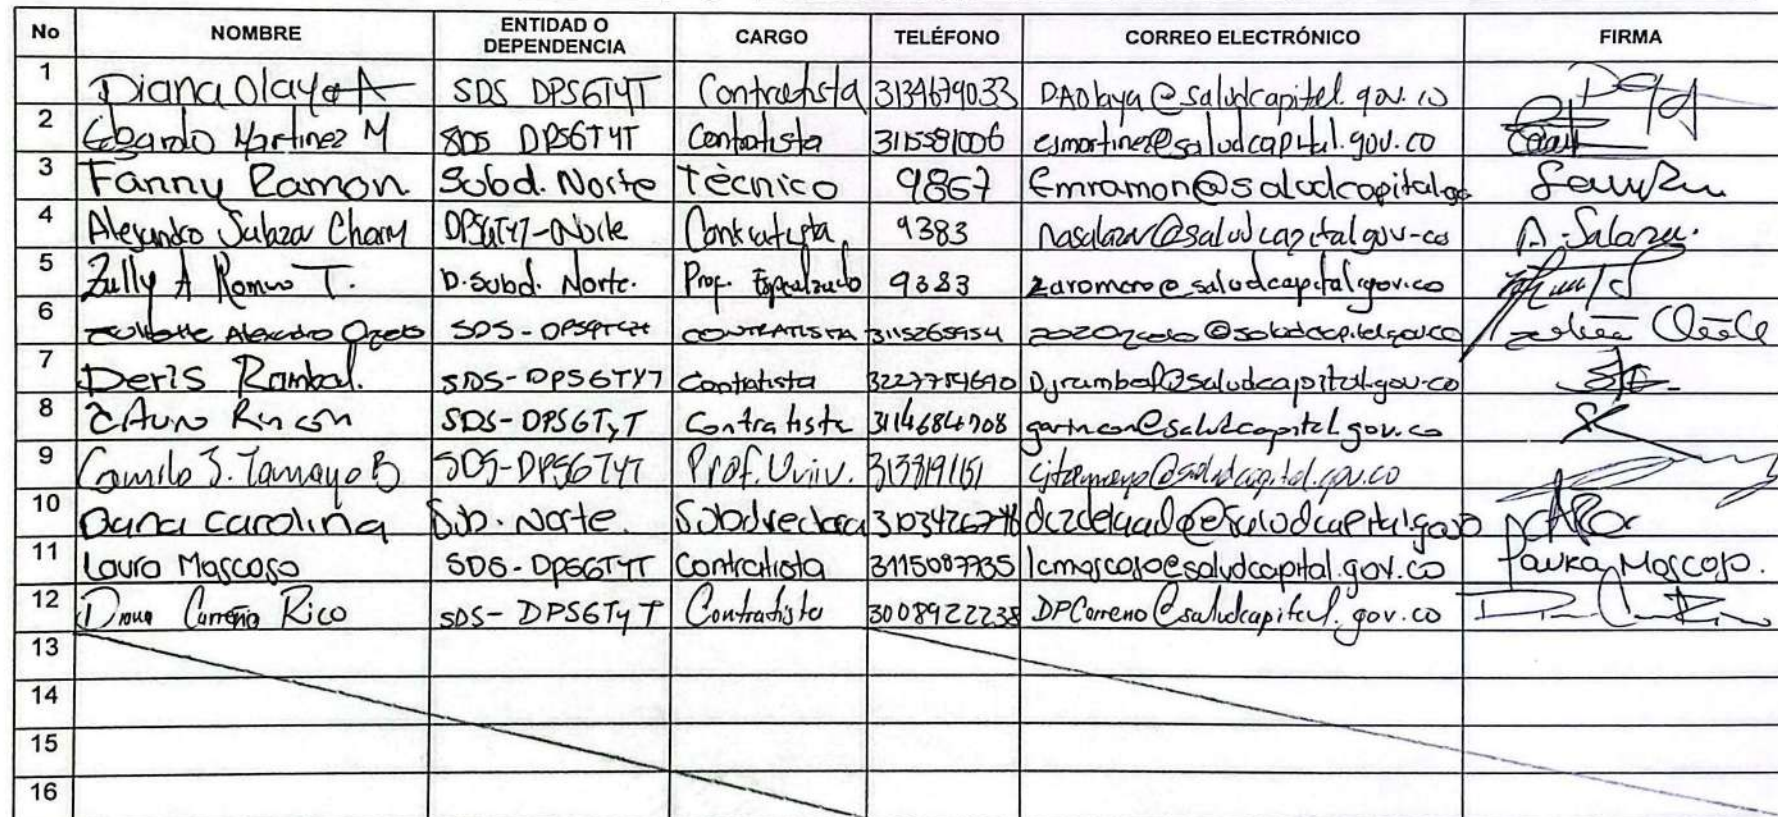 No NOMBRE ENTIDAD O DEPENDENCIA CARGO TELÉFONO CORREO ELECTRÓNICO FIRMA
1 Diana Olaya A SDS DPSGTYT Contratista 3134679033 DAOlaya@saludcapital.gov.co
2 Edgardo Martinez M SDS DPSGTYT Contratista 3115581006 esmartinez@saludcapital.gov.co
3 Fanny Ramon Subd. Norte Tècnico 9867 Emramon@saludcapital.go
4 Alejandro Salazar Charry DPSGTYT-Norte Contratista 9383 nasalazar@saludcapital.gov-co A. Salazar.
5 Zully A Romero T. D. Subd. Norte. Prof. Especializado 9383 zaromero@saludcapital.gov.co
6 Alexandra SDS- CONTRATISTA 3115265954
7 Deris Rambal. SDS-DPSGTYT Contratista Djrambal@saludcapital.gov-co
8 Arturo Rincón SDS-DPSGTyT Contratista 3114684708 garincon@saludcapital.gov.co
9 Camilo J. Tamayo B SDS-DPSGTYT Prof. Univ. 3138191151 cjtamayo@saludcapital.gov.co
10 Dana carolina Sub. Norte. Subdirectora
11 Laura Moscoso SDS-DPSGTYT Contratista 3115087735 lcmoscoso@saludcapital.gov.co Laura Moscoso.
12 Diana Carreño Rico SDS-DPSGTyT Contratista 3008922238 DPCarreno@saludcapital.gov.co
13
14
15
16